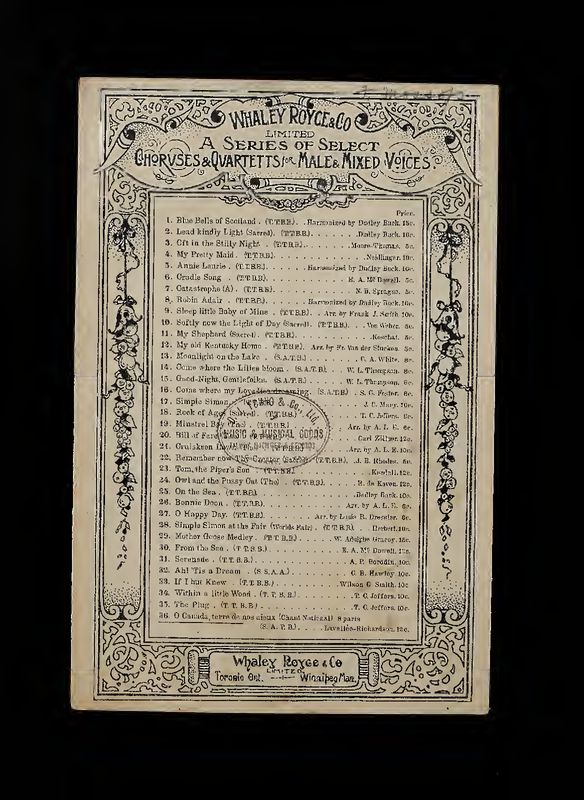 WHALEY ROYCE & CO
LIMITED
A SERIES OF SELECT
CHORVSES & QUARTETTS for MALE & MIXED VOICES
Price.
1. Blue Bells of Scotland . (T.T.B.B.) . . Harmonized by Dudley Buck. 15c.
2. Lead kindly Light (Sacred). (T.T.B.B.) . . . . . . Dudley Buck. 10c.
3. Oft in the Stilly Night . (T.T.B.B.) . . . . . . Moore-Thomas. 5c.
4. My Pretty Maid . (T.T.B.B.) . . . . . . Neidlinger. 10c.
5. Annie Laurie . (T.T.B.B.) . . . . . . Harmonized by Dudley Buck. 10c.
6. Cradle Song . (T.T.B.B.) . . . . . . E. A. McDowell. 5c.
7. Catastrophe (A) . (T.T.B.B.) . . . . . . N. B. Sprague. 5c.
8. Robin Adair . (T.T.B.B.) . . . . . . Harmonized by Dudley Buck. 10c.
9. Sleep little Baby of Mine . (T.T.B.B.) . . Arr. by Frank J. Smith 10c.
10. Softly now the Light of Day (Sacred). (T.T.B.B.) . . . Von Weber. 5c.
11. My Shepherd (Sacred) . (T.T.B.B.) . . . . . . Koschat. 5c.
12. My old Kentucky Home . (T.T.B.B.) . Arr. by Fr. Van der Stucken. 5c.
13. Moonlight on the Lake . (S.A.T.B.) . . . . . . C. A. White. 8c.
14. Come where the Lilies bloom . (S.A.T.B.) . . . W. L. Thompson. 8c.
15. Good-Night, Gentlefolks. (S.A.T.B.) . . . . W. L. Thompson. 8c.
16. Come where my Love lies dreaming. (S.A.T.B.) . S. C. Foster. 8c.
17. Simple Simon . . . . . . J. C. Macy. 10c.
18. Rock of Ages (Sacred). (T.T.B.B.) . . . . . . T. C. Jeffers. 6c.
19. Minstrel Boy (The) . (T.T.B.B.) . . . . Arr. by A. L. E. 6c.
20. Bill of Fare . . . . . . Carl Zöllner. 12c.
21. Cruiskeen Lawn . . . . . . Arr. by A. L. E. 10c.
22. Remember now Thy Creator (Sacred). (T.T.B.B.) . . J. B. Rhodes. 6c.
23. Tom, the Piper's Son . (T.T.B.B.) . . . . . . Kendall. 12c.
24. Owl and the Pussy Cat (The) . (T.T.B.B.) . . . . R. de Koven. 12c.
25. On the Sea . (T.T.B.B.) . . . . . . Dudley Buck. 10c.
26. Bonnie Doon . (T.T.B.B.) . . . . . . Arr. by A. L. E. 6c.
27. O Happy Day. (T.T.B.B.) . . . . Arr. by Louis R. Dressler. 6c.
28. Simple Simon at the Fair (Worlds Fair) . (T.T.B.B.) . . . Herbert. 10c.
29. Mother Goose Medley . (T.T.B.B.) . . . . W. Adolphe Grancy. 15c.
30. From the Sea . (T.T.B.B.) . . . . . . E. A. McDowell. 12c.
31. Serenade . (T.T.B.B.) . . . . . . A. P. Borodin. 10c.
32. Ah! 'Tis a Dream . (S.S.A.A.) . . . . . . C. B. Hawley. 10c.
33. If I but Knew . (T.T.B.B.) . . . . . . Wilson G. Smith. 10c.
34. Within a little Wood . (T.T.B.B.) . . . . . . T. C. Jeffers. 10c.
35. The Plug . (T.T.B.B.) . . . . . . T. C. Jeffers. 10c.
36. O Canada, terre de nos aïeux (Chant National) 8 parts
(S.A.T.B.) . . . . Lavallée-Richardson. 12c.
& Co., Ltd.
MUSIC & MUSICAL GOODS
Whaley Royce & Co
LIMITED
Toronto Ont. Winnipeg Man.